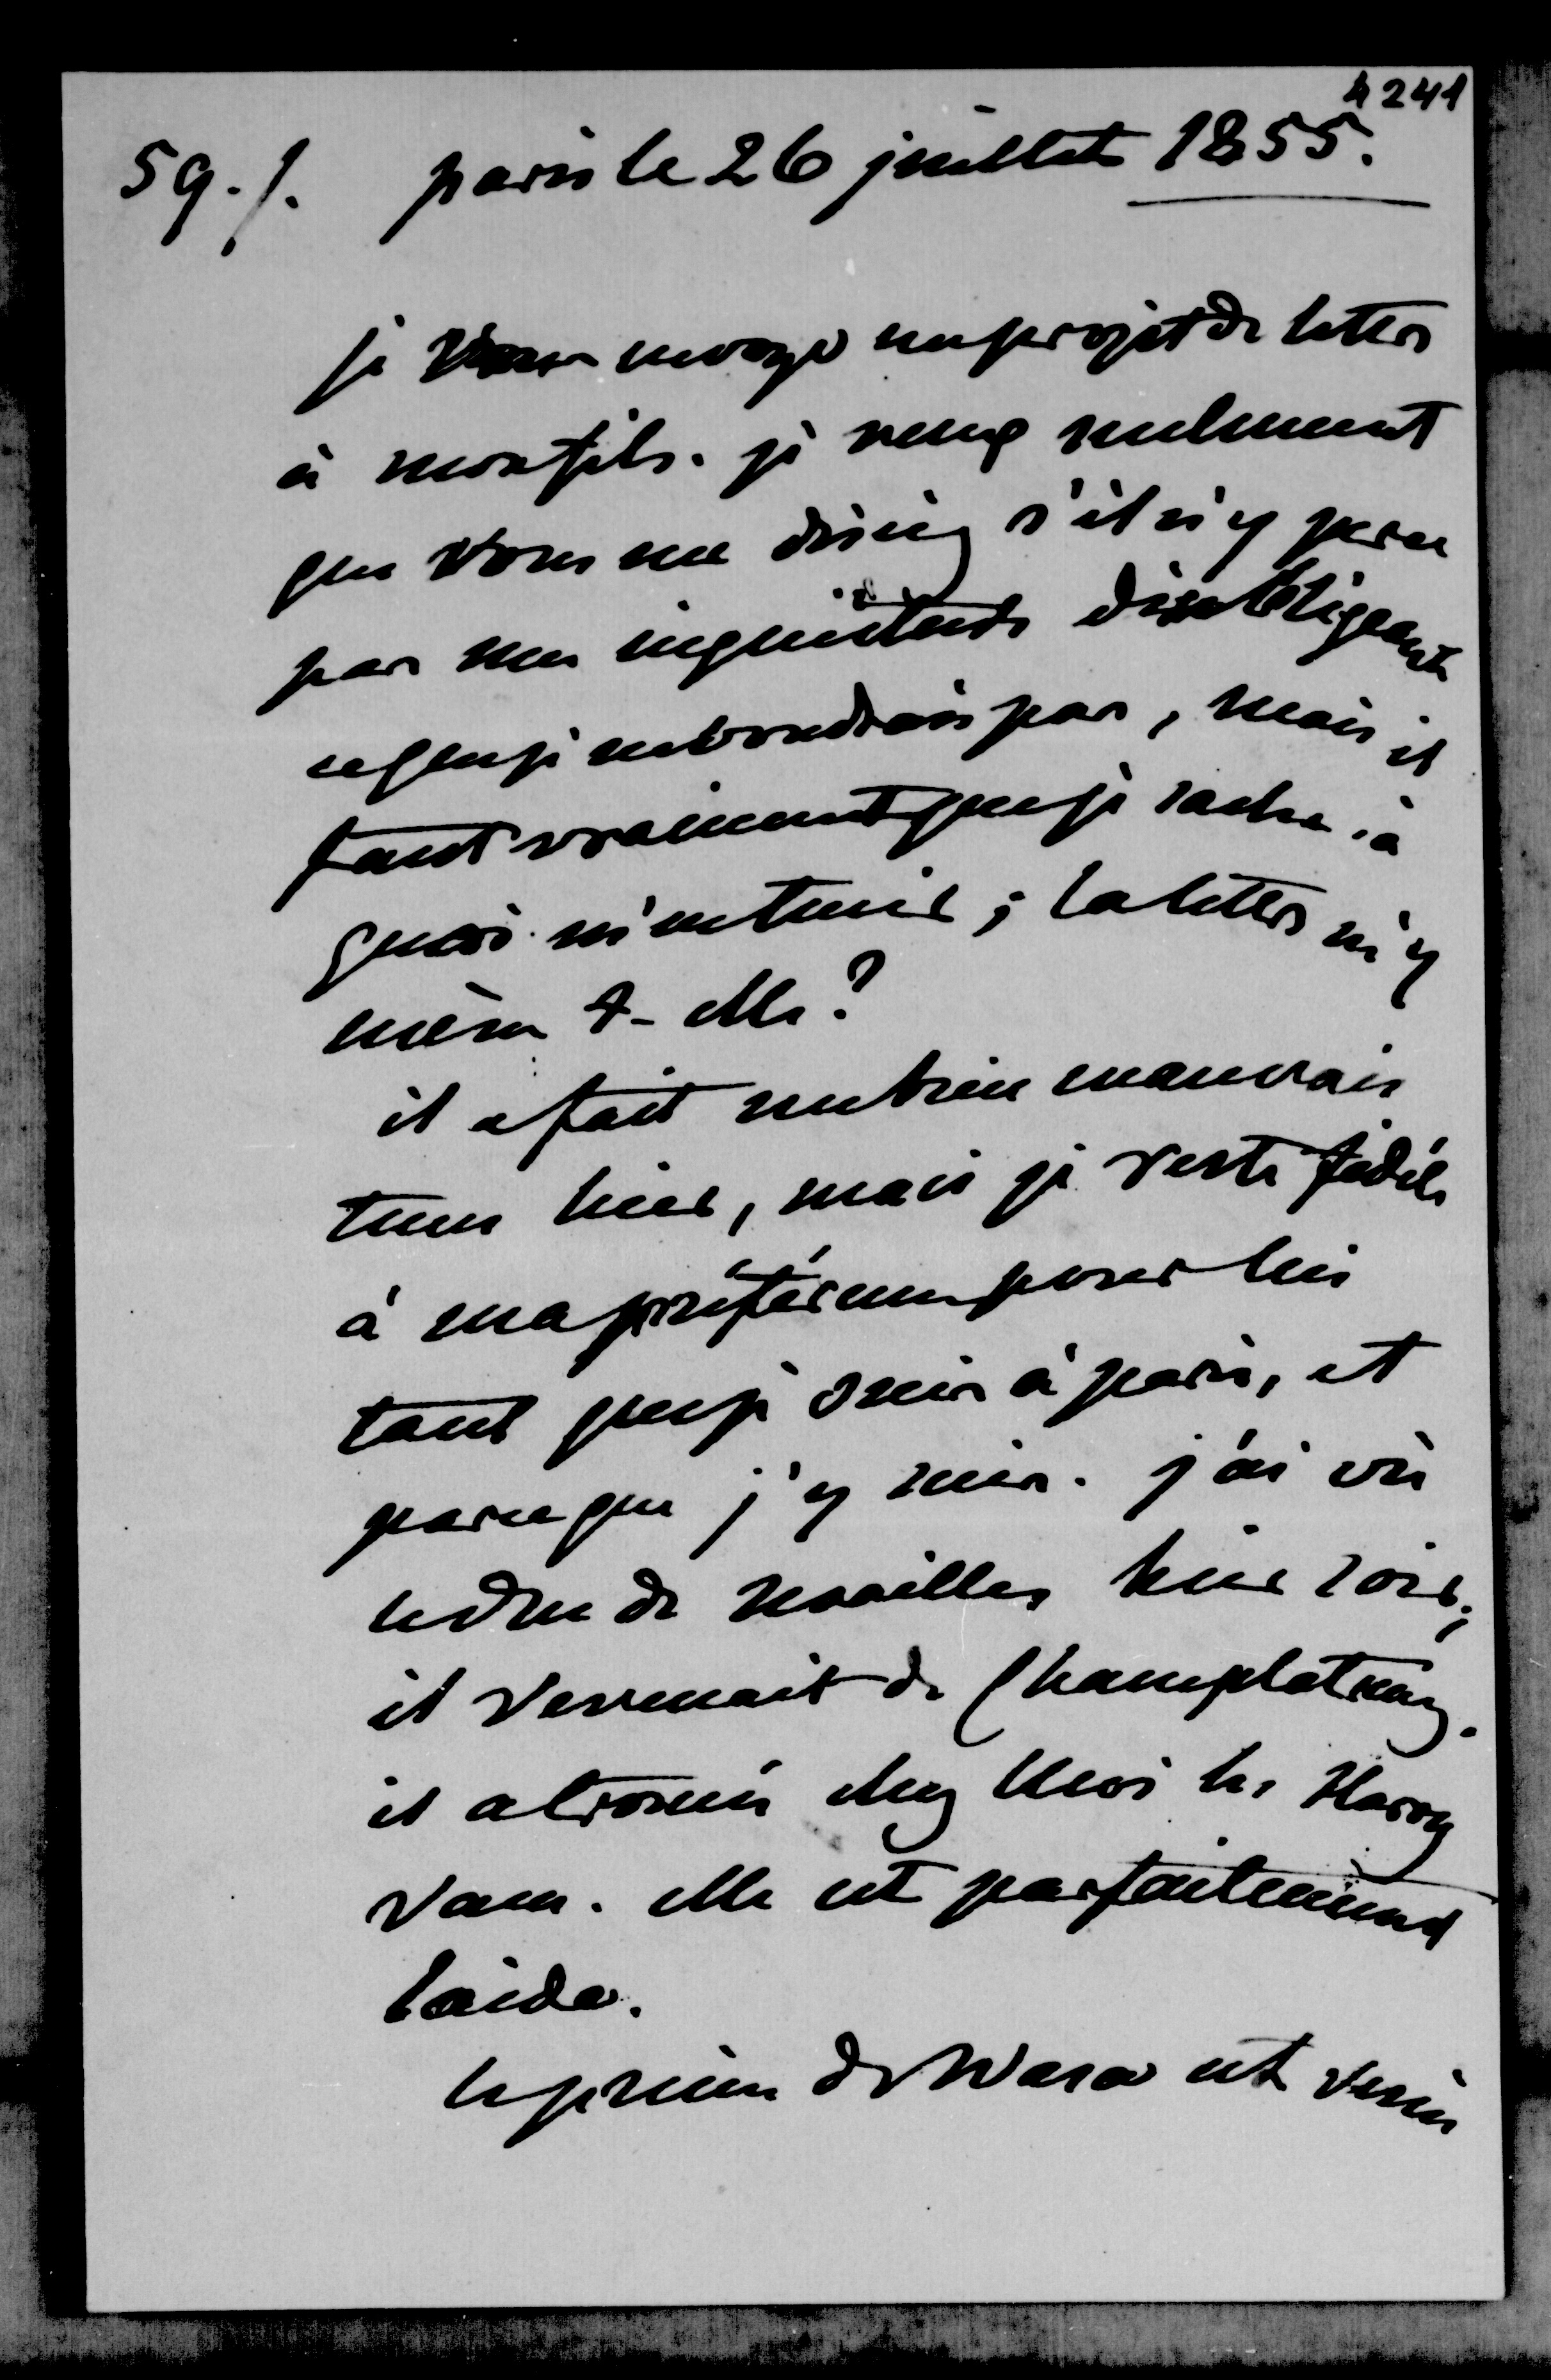 4241
59./. paris le 26 juillet 1855.
je vous envoye un projet de lettre
à mon fils. je veux seulement
que vous me disiez s'il n'y perce
pas une inquiétude désobligeante
ce que je ne voudrais pas, mais il
faut vraiment que je sache à
quoi m'en tenir ; la lettre m'y
mène t-elle ?
il a fait un bien mauvais
tems hier, mais je reste fidèle
à ma préférence pour lui
tant que je suis à paris, et
parceque j'y suis. j'ai vu
le duc de Noailles hier soir,
il revenait de Champlatreux.
il a trouvé chez moi la Harry
Vane. elle est parfaitement
laide.
le prince de Wasa est venu